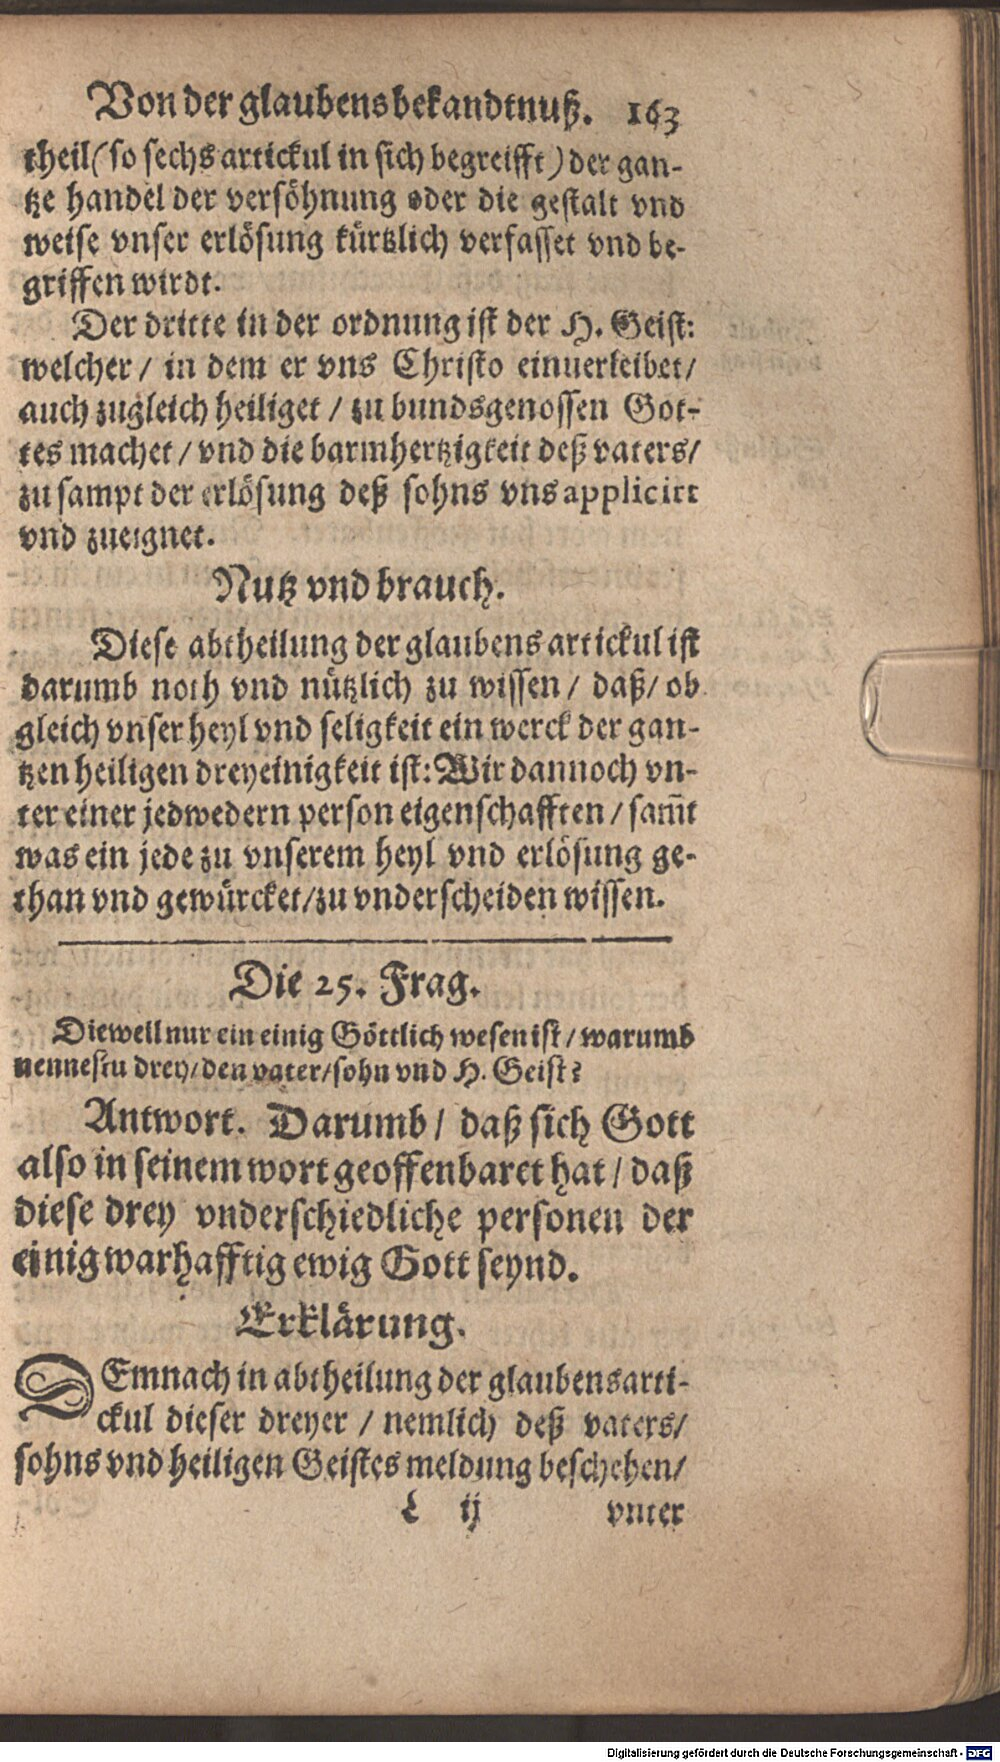 Von der glaubensbekandtnuß. 163
theil (so sechs artickul in sich begreifft) der gan-
tze handel der versöhnung oder die gestalt vnd
weise vnser erlösung kürtzlich verfasset vnd be-
griffen wirdt.
Der dritte in der ordnung ist der H. Geist:
welcher / in dem er vns Christo einuerleibet/
auch zugleich heiliget / zu bundsgenossen Got-
tes machet / vnd die barmhertzigkeit deß vaters/
zu sampt der erlösung deß sohns vns applicirt
vnd zueignet.
Nutz vnd brauch.
Diese abtheilung der glaubens artickul ist
darumb noth vnd nützlich zu wissen / daß/ ob
gleich vnser heyl vnd seligkeit ein werck der gan-
tzen heiligen dreyeinigkeit ist: Wir dannoch vn-
ter einer jedwedern person eigenschafften / sam̃t
was ein jede zu vnserem heyl vnd erlösung ge-
than vnd gewürcket/zu vnderscheiden wissen.
Die 25. Frag.
Dieweil nur ein einig Göttlich wesen ist / warumb
nennestu drey/den vater/sohn vnd H. Geist?
Antwort. Darumb / daß sich Gott
also in seinem wort geoffenbaret hat / daß
diese drey vnderschiedliche personen der
einig warhafftig ewig Gott seynd.
Erklärung.
DEmnach in abtheilung der glaubensarti-
ckul dieser dreyer / nemlich deß vaters/
sohns vnd heiligen Geistes meldung beschehen/
L ij vnter
Digitalisierung gefördert durch die Deutsche Forschungsgemeinschaft - DFG